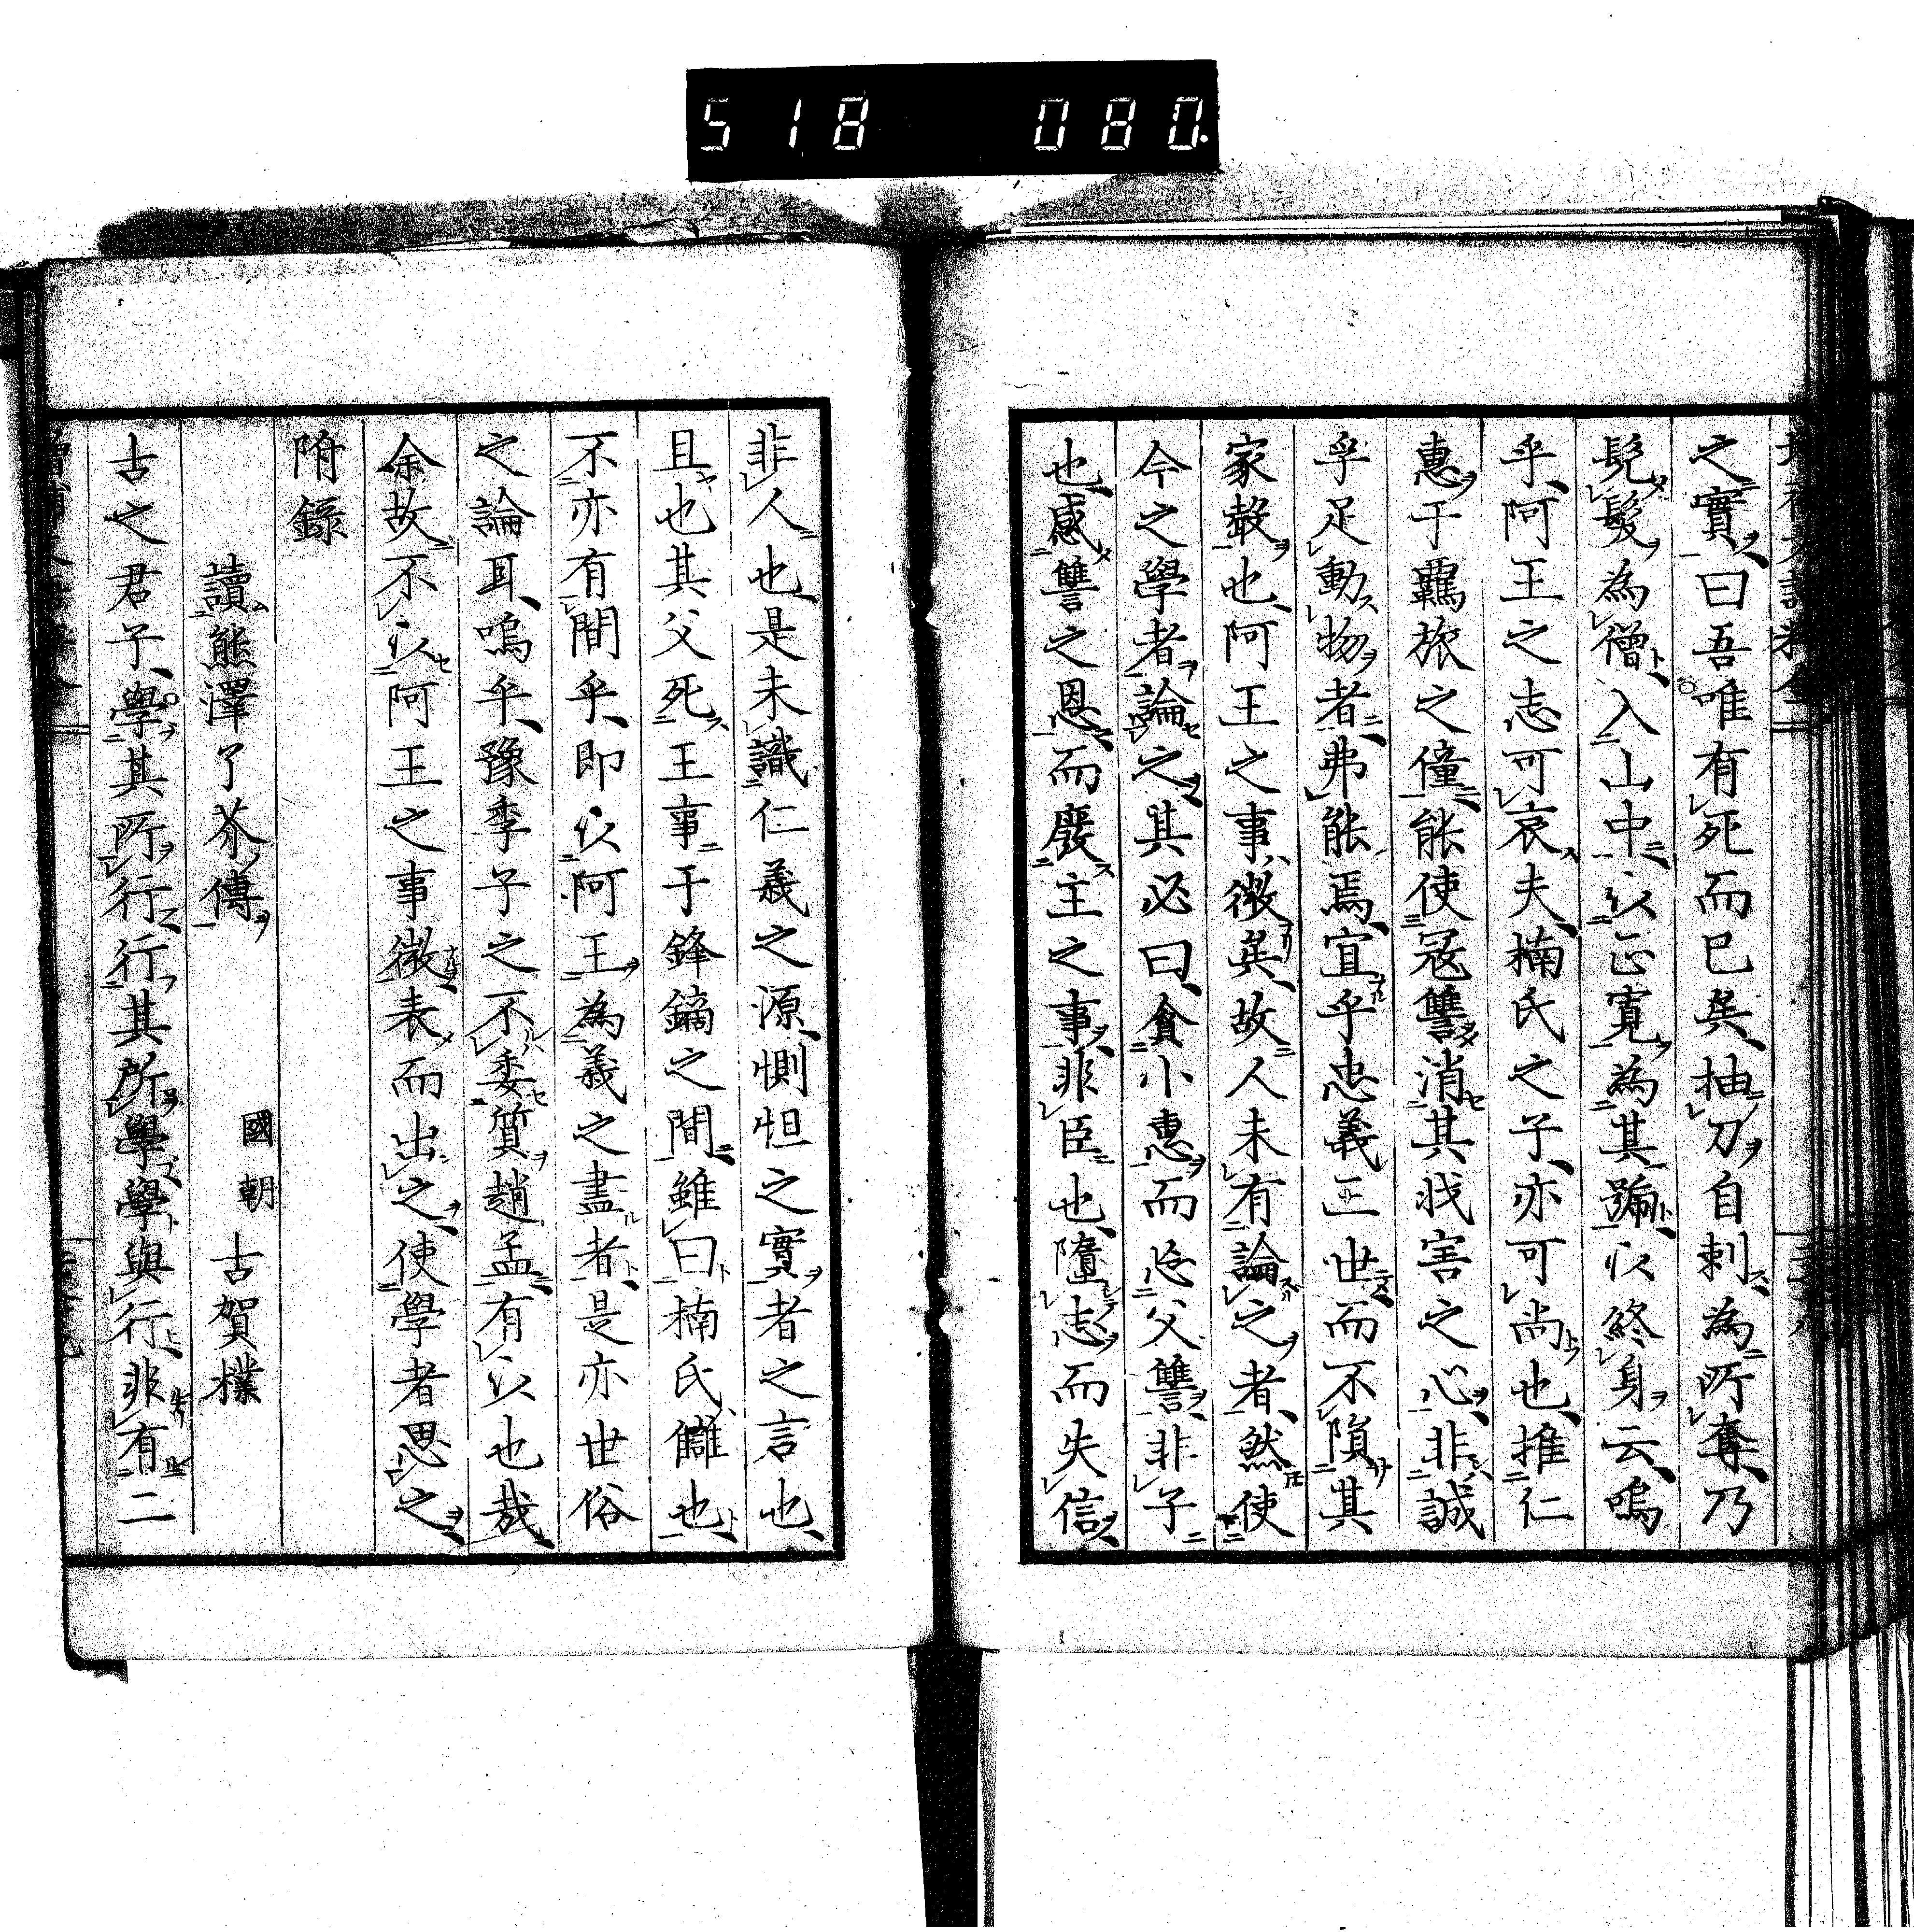 518 080.
之實、曰吾唯有死而已矣、抽刀自刺、為所奪、乃
髠髮為僧、入山中、以正寬為其號、以終身云、嗚
乎、阿王之志可哀夫、楠氏之子、亦可尚也、推仁
惠于羈旅之僮、能使寇讐消其戕害之心、非誠
孚足動物者、弗能焉、宜乎忠義三世而不隕其
家聲也、阿王之事微矣、故人未有論之者、然使
今之學者論之、其必曰、貪小惠而忘父讐、非子
也、感讐之恩、而廢主之事、非臣也、墮志而失信、
非人也、是未識仁義之源、惻怛之實者之言也、
且也其父死王事于鋒鏑之間、雖曰楠氏讎也、
不亦有間乎、即以阿王為義之盡者、是亦世俗
之論耳、嗚乎、豫季子之不委質趙孟、有以也哉、
余故不以阿王之事微、表而出之、使學者思之、
附錄
讀熊澤了芥傳
國朝 古賀樸
古之君子、學其所行、行其所學、學與行非有二